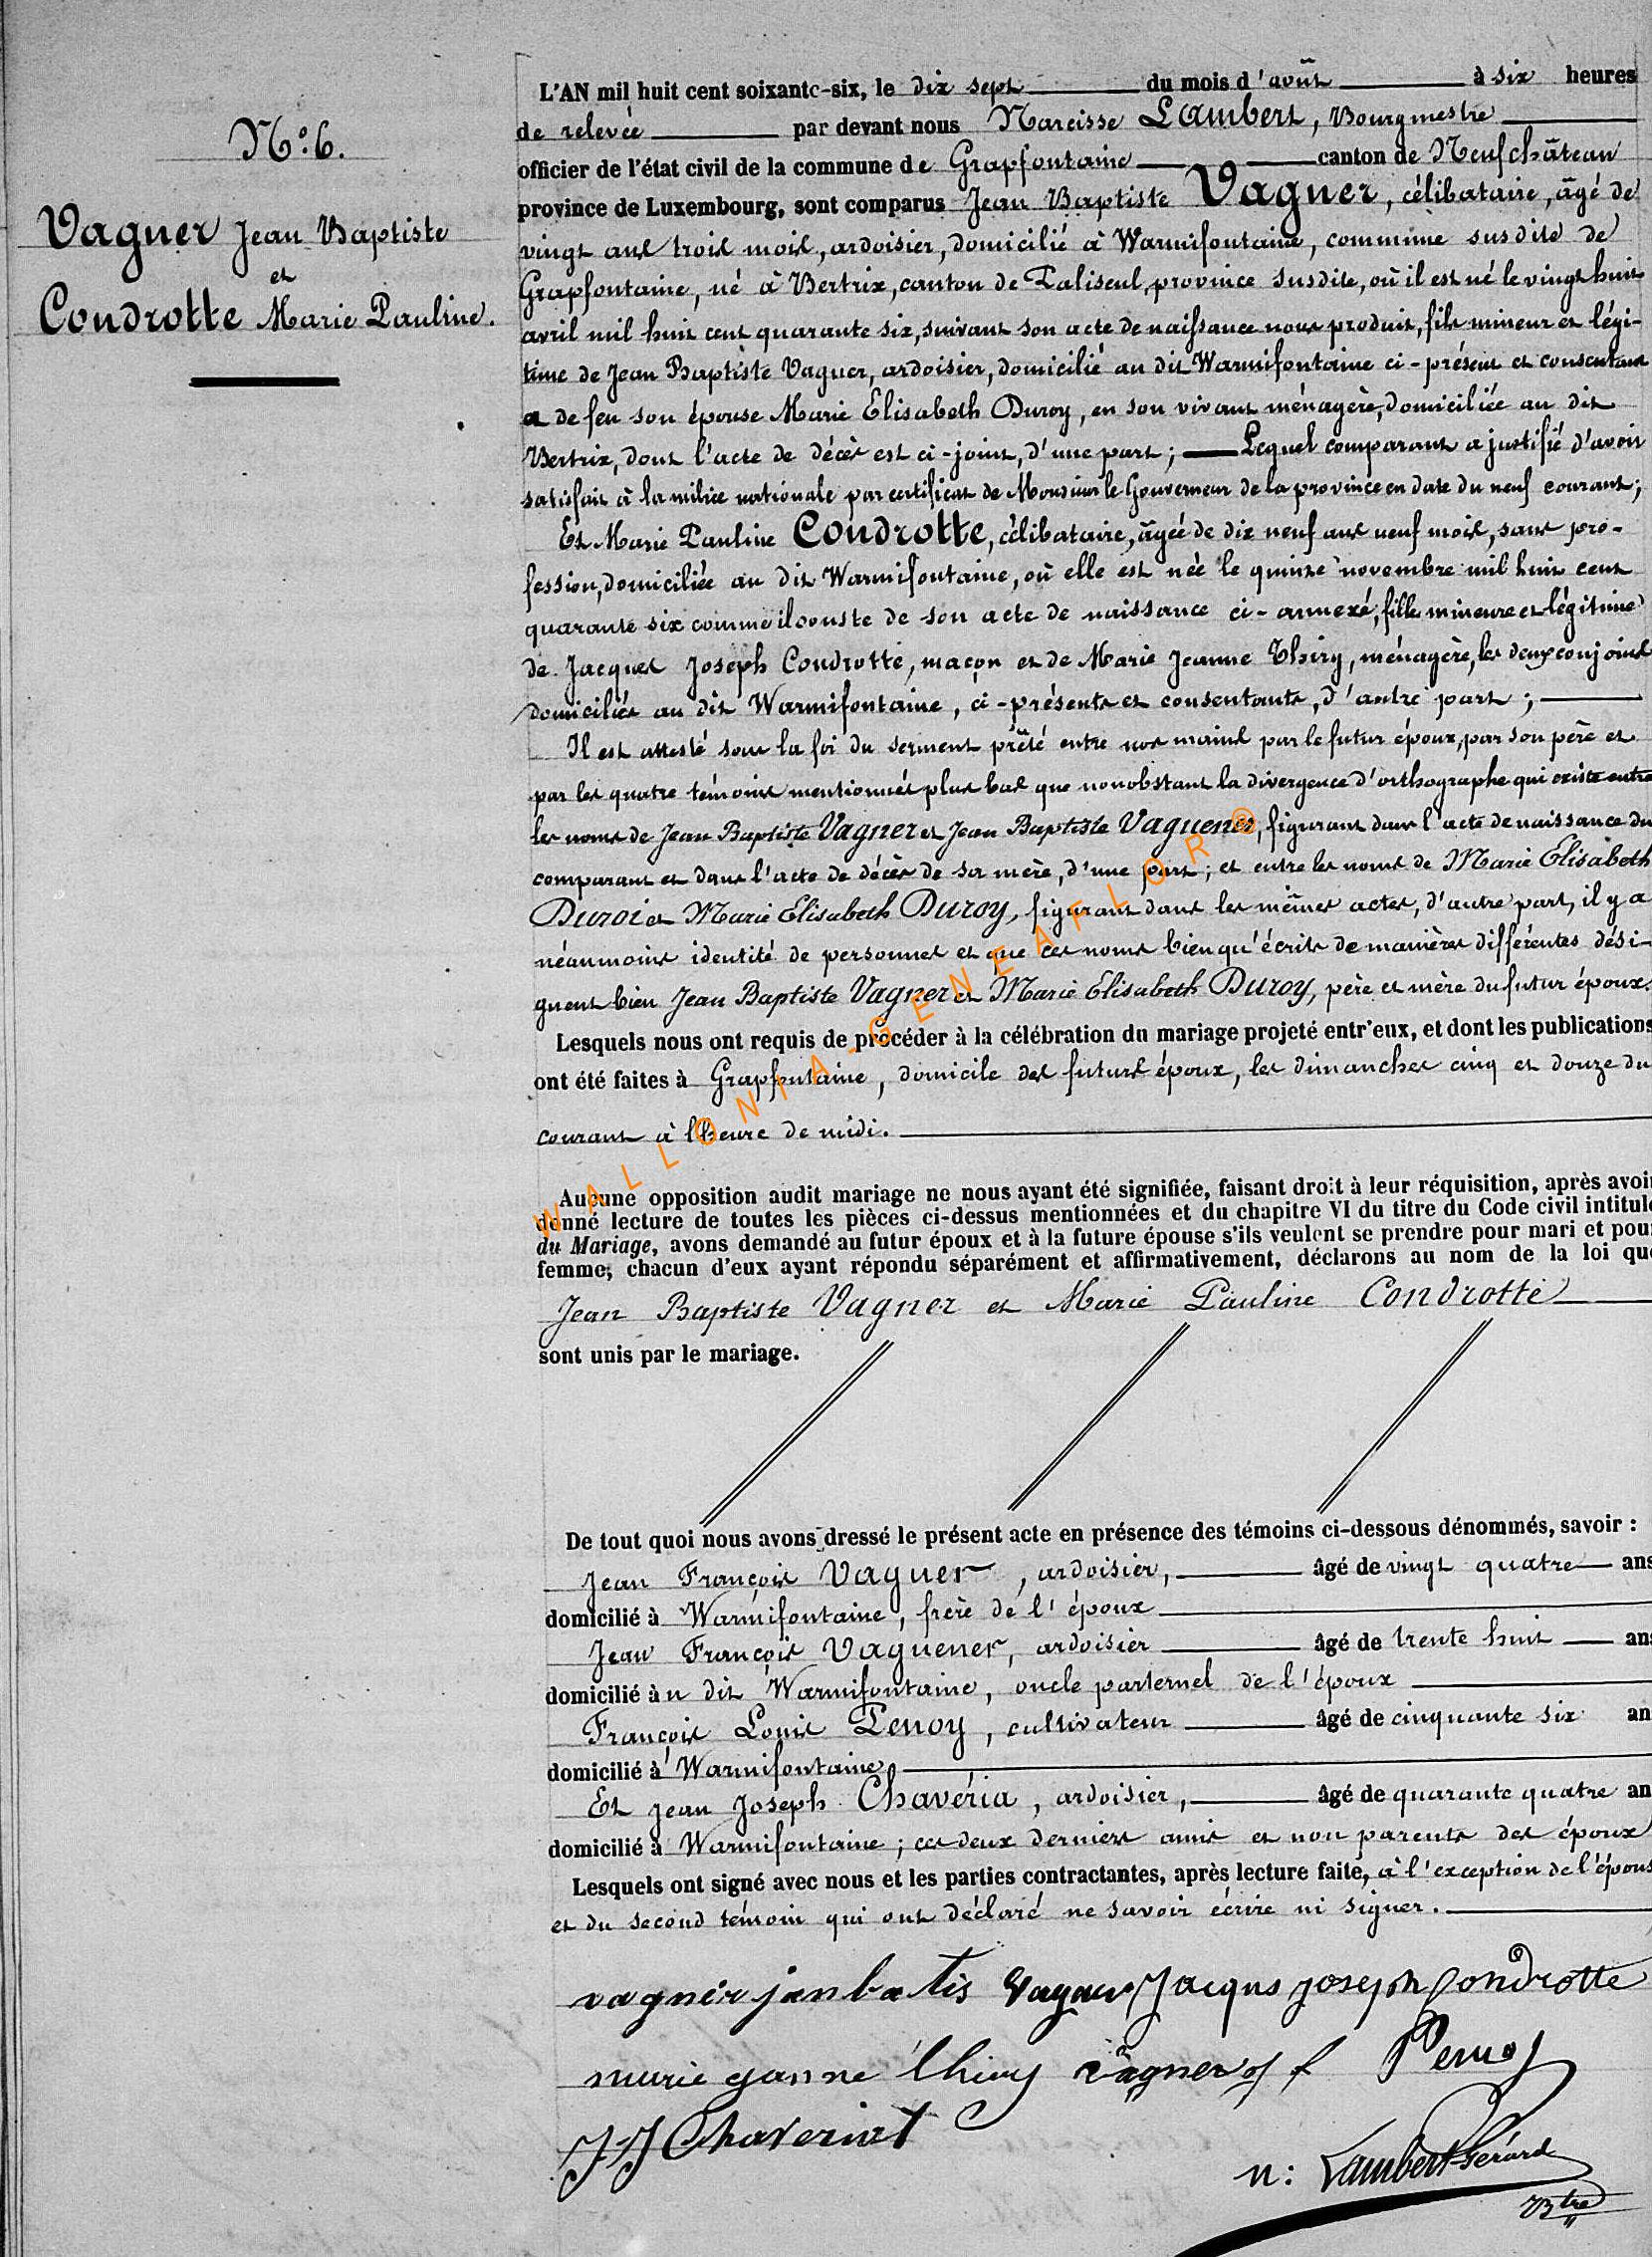 N.º 6.
Vagner Jean Baptiste
et
Condrotte Marie Pauline.
L'AN mil huit cent soixante-six, le dix sept du mois d'août à six heures
de relevée par devant nous Narcisse Lambert, Bourgmestre
officier de l'état civil de la commune de Grapfontaine canton de Neufchâteau
province de Luxembourg, sont comparus Jean Baptiste Vagner, célibataire, âgé de
vingt ans trois mois, ardoisier, domicilié à Warmifontaine, commune susdite de
Grapfontaine, né à Bertrix, canton de Paliseul, province susdite, où il est né le vingt huit
avril mil huit cent quarante six, suivant son acte de naissance nous produit, fils mineur et légi-
time de Jean Baptiste Vagner, ardoisier, domicilié au dit Warmifontaine ci-présent et consentant
et de feu son épouse Marie Elisabeth Duroy, en son vivant ménagère, domiciliée au dit
Bertrix, dont l'acte de décès est ci-joint, d'une part; Lequel comparant a justifié d'avoir
satisfait à la milice nationale par certificat de Monsieur le Gouverneur de la province en date du neuf courant;
Et Marie Pauline Condrotte, célibataire, âgée de dix neuf ans neuf mois, sans pro-
fession, domiciliée au dit Warmifontaine, où elle est née le quinze novembre mil huit cent
quarante six comme il conste de son acte de naissance ci-annexé, fille mineure et légitime
de Jacques Joseph Condrotte, maçon et de Marie Jeanne Thiry, ménagère, les deux conjoints
domiciliés au dit Warmifontaine, ci-présents et consentants, d'autre part;
Il est attesté sous la foi du serment prêté entre nos mains par le futur époux, par son père et
par les quatre témoins mentionnés plus bas que nonobstant la divergence d'orthographe qui existe entre
les noms de Jean Baptiste Vagner et Jean Baptiste Vaguener, figurant dans l'acte de naissance du
comparant et dans l'acte de décès de sa mère, d'une part; et entre les noms de Marie Elisabeth
Duroi et Marie Elisabeth Duroy, figurant dans les mêmes actes, d'autre part, il y a
néanmoins identité de personnes et que ces noms bien qu'écrits de manières différentes dési-
gnent bien Jean Baptiste Vagner et Marie Elisabeth Duroy, père et mère du futur époux.
Lesquels nous ont requis de procéder à la célébration du mariage projeté entr'eux, et dont les publications
ont été faites à Grapfontaine, domicile des futurs époux, les dimanches cinq et douze du
courant à l'heure de midi.
Aucune opposition audit mariage ne nous ayant été signifiée, faisant droit à leur réquisition, après avoir
donné lecture de toutes les pièces ci-dessus mentionnées et du chapitre VI du titre du Code civil intitulé
du Mariage, avons demandé au futur époux et à la future épouse s'ils veulent se prendre pour mari et pour
femme; chacun d'eux ayant répondu séparément et affirmativement, déclarons au nom de la loi que
Jean Baptiste Vagner et Marie Pauline Condrotte
sont unis par le mariage.
De tout quoi nous avons dressé le présent acte en présence des témoins ci-dessous dénommés, savoir :
Jean François Vaguer, ardoisier, âgé de vingt quatre ans
domicilié à Warmifontaine, frère de l'époux
Jean François Vaguener, ardoisier âgé de trente huit ans
domicilié au dit Warmifontaine, oncle parternel de l'époux
François Louis Penoy, cultivateur âgé de cinquante six an
domicilié à Warmifontaine
Et Jean Joseph Chavéria, ardoisier, âgé de quarante quatre an
domicilié à Warmifontaine; ces deux derniers amis et non parents des époux
Lesquels ont signé avec nous et les parties contractantes, après lecture faite, à l'exception de l'épous
et du second témoin qui ont déclaré ne savoir écrire ni signer.
vagner jan batis Vagner Jacqus joseph Condrotte
marie ganne thiry vagner j f Penoy
J J Chaveriat
N: Lambert Gérard
Btre
WALLONIA-GENEAFLOR®